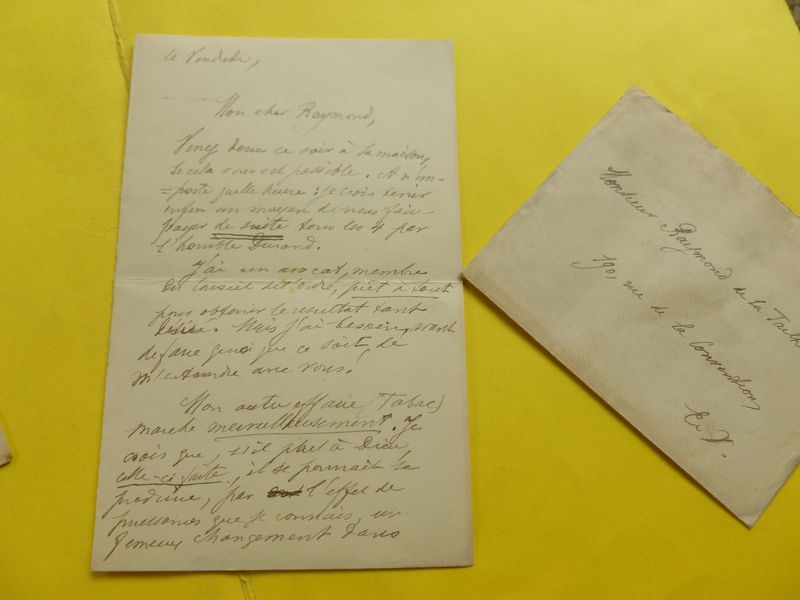 ce Vendredi,
Mon cher Raymond,
Venez donc ce soir à la maison,
si cela vous est possible. A n'im-
=porte quelle heure : je crois tenir
enfin un moyen de nous faire
payer de suite tous les 4 par
l'horrible Durand.
J'ai un avocat, membre
du Conseil dit Ordre, prêt à tout
pour obtenir le résultat tant
désiré. Mais j'ai besoin, avant
de faire quoi que ce soit, de
m'entendre avec vous.
Mon autre affaire (Tabac)
marche merveilleusement. Je
crois que, s'il plait à Dieu,
celle-ci faite, il se pourrait se
produire, par l'effet de
puissances que je connais, un
fameux changement dans
Monsieur Raymond de la Taille
190, rue de la Convention
E. V.